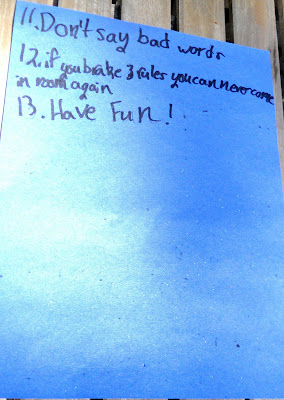 11. Don't say bad words
12. if you brake 3 rules you can never come
in room again
13. Have Fun!